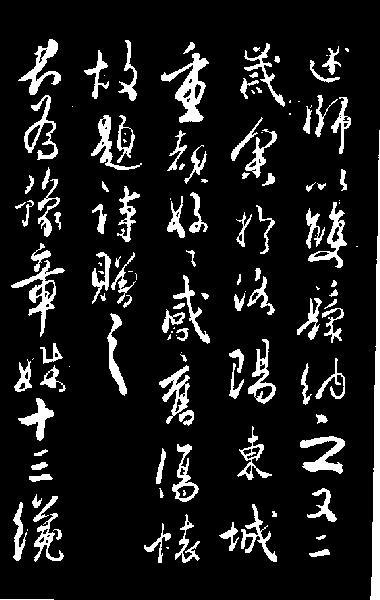 述師以雙鬟納之又二
歲余於洛陽東城
重覩好〻感舊傷懷
故題詩贈之
君為豫章姝十三纔